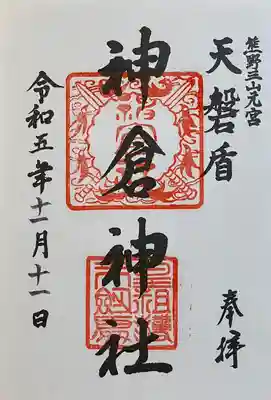 熊野三山元宮
天磐盾
奉拝
神倉神社
令和五年十一月十一日